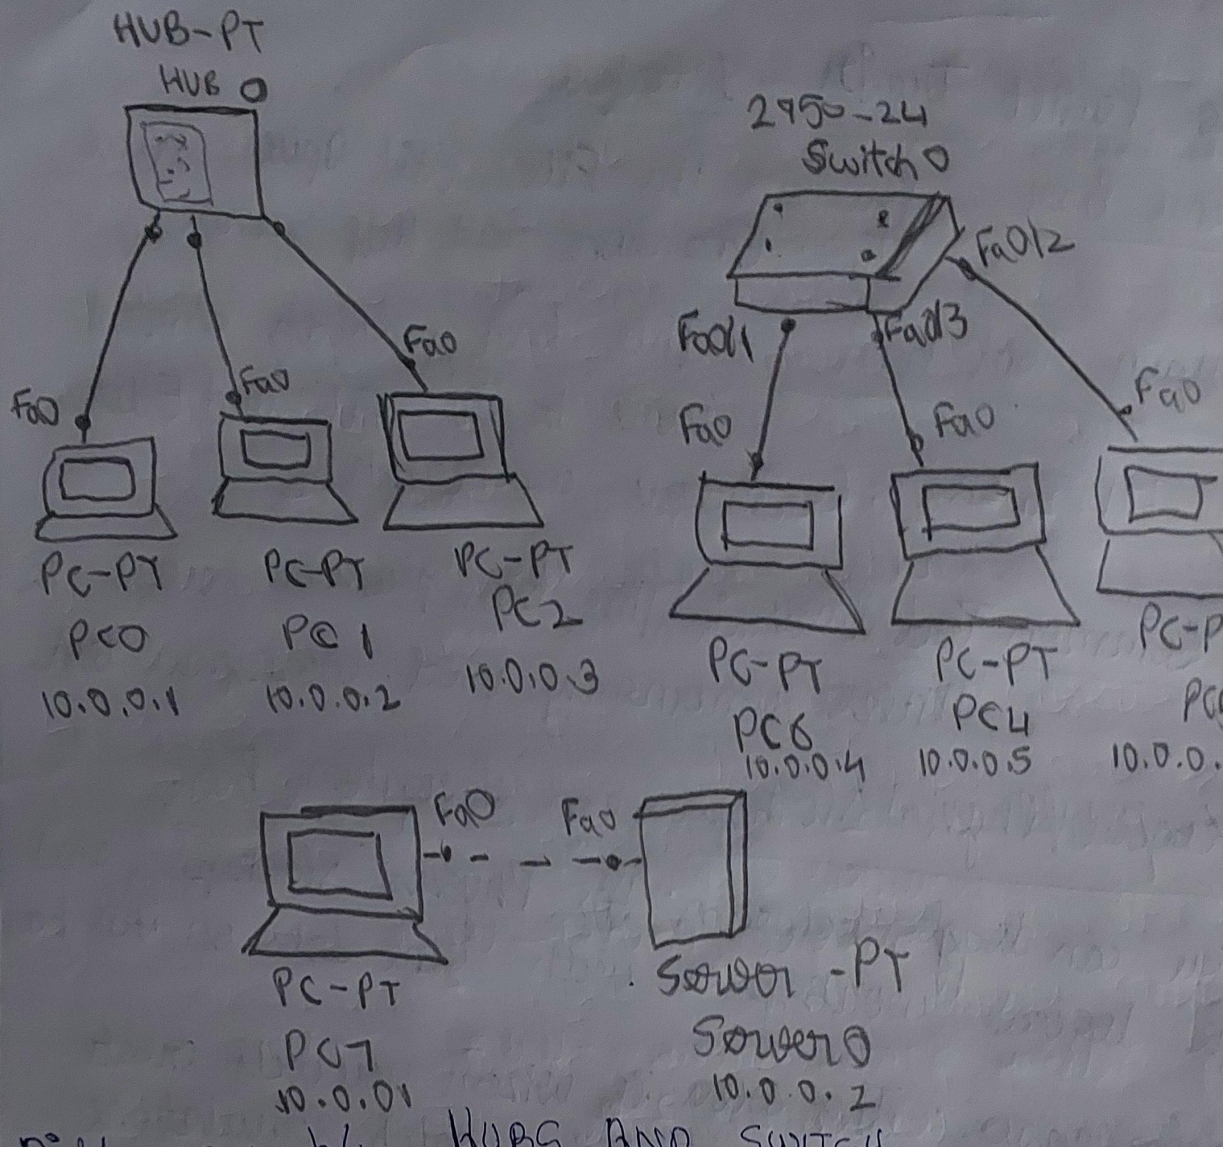 HUB-PT
HUB 0
Fa0
Fa0
Fa0
PC-PT
PC0
10.0.0.1
PC-PT
PC1
10.0.0.2
PC-PT
PC2
10.0.0.3
2950-24
Switch 0
Fa0/1
Fa0/3
Fa0/2
Fa0
Fa0
Fa0
PC-PT
PC6
10.0.0.4
PC-PT
PC4
10.0.0.5
PC-P
PC
10.0.0.
Fa0
Fa0
PC-PT
PC7
10.0.01
Server-PT
Server0
10.0.0.2
HUBS AND SWITCH